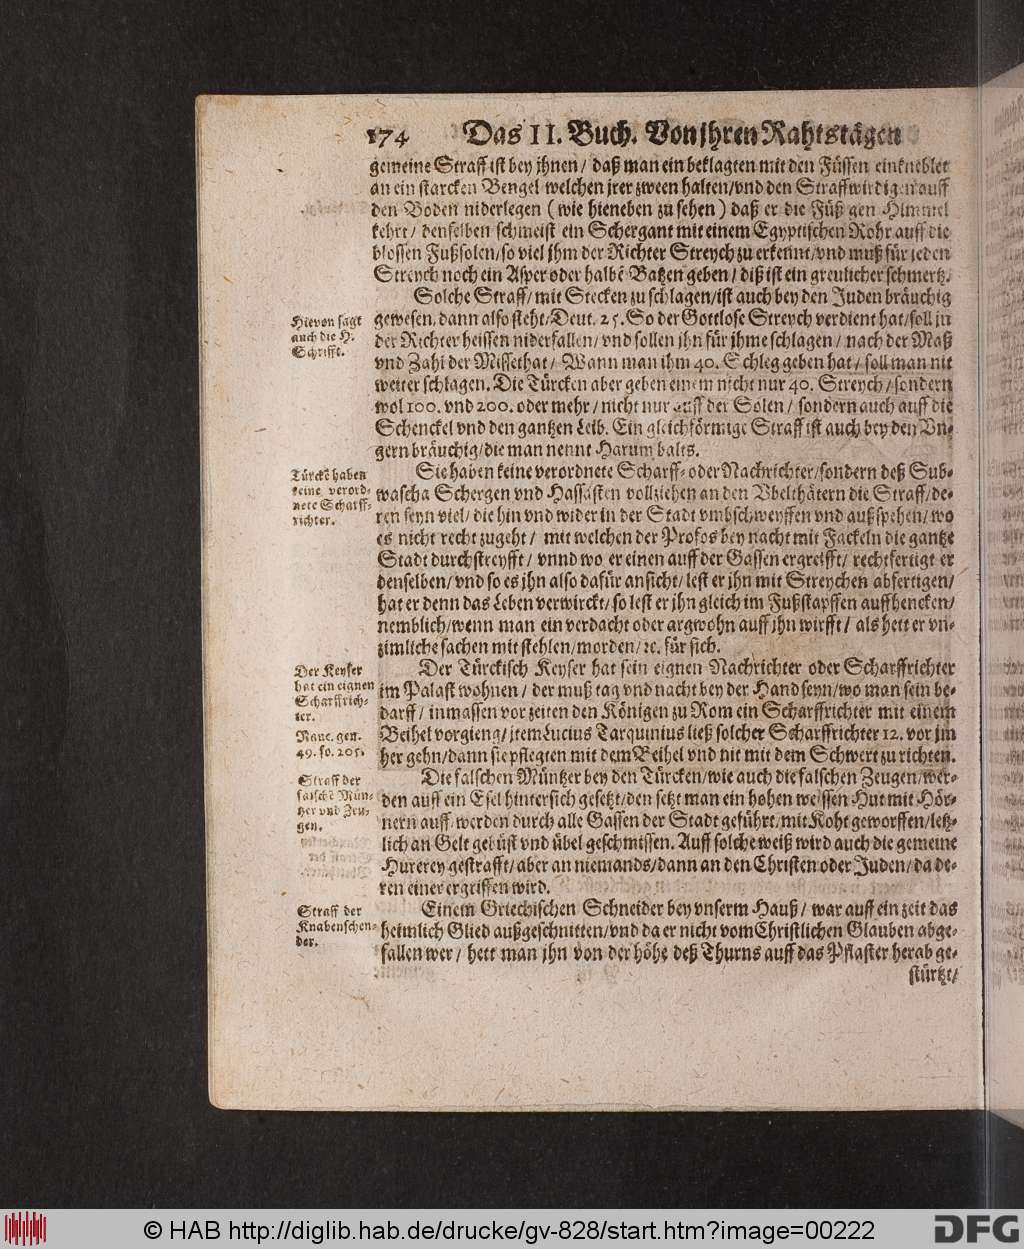 174 Das II. Buch. Von jhren Rahtstägen
gemeine Straff ist bey jhnen / daß man ein beklagten mit den Füssen einkneblet
an ein starcken Bengel welchen jrer zween halten / vnd den Straffwirdigen auff
den Boden niderlegen ( wie hieneben zu sehen ) daß er die Füß gen Himmel
kehrt / denselben schmeist ein Schergant mit einem Egyptischen Rohr auff die
blossen Fußsolen / so viel jhm der Richter Streych zu erkennt / vnd muß für jeden
Streych noch ein Asper oder halbẽ Batzen geben / diß ist ein greulicher schmertz.
Solche Straff / mit Stecken zu schlagen / ist auch bey den Juden bräuchig
Hievon sagt
auch die H.
Schrifft.
gewesen, dann also steht / Deut. 25. So der Gottlose Streych verdient hat / soll jn
der Richter heissen niderfallen / vnd sollen jhn für jhme schlagen / nach der Maß
vnd Zahl der Missethat / Wann man ihm 40. Schleg geben hat / soll man nit
weiter schlagen. Die Türcken aber geben einem nicht nur 40. Streych / sondern
wol 100. vnd 200. oder mehr / nicht nur auff der Solen / sondern auch auff die
Schenckel vnd den gantzen Leib. Ein gleichförmige Straff ist auch bey den Vn-
gern bräuchig / die man nennt Harum balts.
Türckẽ haben
keine verord-
nete Scharff-
richter.
Sie haben keine verordnete Scharff- oder Nachrichter / sondern deß Sub-
wascha Schergen vnd Hassasten vollziehen an den Vbelthätern die Straff / de-
ren seyn viel / die hin vnd wider in der Stadt vmbschweyffen vnd außspehen / wo
es nicht recht zugeht / mit welchen der Profos bey nacht mit Fackeln die gantze
Stadt durchstreyfft / vnnd wo er einen auff der Gassen ergreifft / rechtfertigt er
denselben / vnd so es jhn also dafür ansicht / lest er jhn mit Streychen abfertigen /
hat er denn das Leben verwirckt / so lest er jhn gleich im Fußstapffen auffhencken /
nemblich / wenn man ein verdacht oder argwohn auff jhn wirfft / als hett er vn-
zimliche sachen mit stehlen / morden / ꝛc. für sich.
Der Keyser
hat ein eignen
Scharffrich-
ter.
Nauc. gen.
49. fo. 205.
Der Türckisch Keyser hat sein eignen Nachrichter oder Scharffrichter
im Palast wohnen / der muß tag vnd nacht bey der Hand seyn / wo man sein be-
darff / inmassen vor zeiten den Königen zu Rom ein Scharffrichter mit einem
Beihel vorgieng / jtem Lucius Tarquinius ließ solcher Scharffrichter 12. vor jm
her gehn / dann sie pflegten mit dem Beihel vnd nit mit dem Schwert zu richten.
Straff der
falschẽ Mün-
tzer vnd Zeu-
gen.
Die falschen Müntzer bey den Türcken / wie auch die falschen Zeugen / wer-
den auff ein Esel hintersich gesetzt / den setzt man ein hohen weissen Hut mit Hör-
nern auff / werden durch alle Gassen der Stadt geführt, mit Koht geworffen / letz-
lich an Gelt gebüst vnd übel geschmissen. Auff solche weiß wird auch die gemeine
Hurerey gestrafft / aber an niemands / dann an den Christen oder Juden / da de-
ren einer ergriffen wird.
Straff der
Knabenschen-
der.
Einem Griechischen Schneider bey vnserm Hauß / war auff ein zeit das
heimlich Glied außgeschnitten / vnd da er nicht vom Christlichen Glauben abge-
fallen wer / hett man jhn von der höhe deß Thurns auff das Pflaster herab ge-
stürtzt /
© HAB http://diglib.hab.de/drucke/gv-828/start.htm?image=00222
DFG